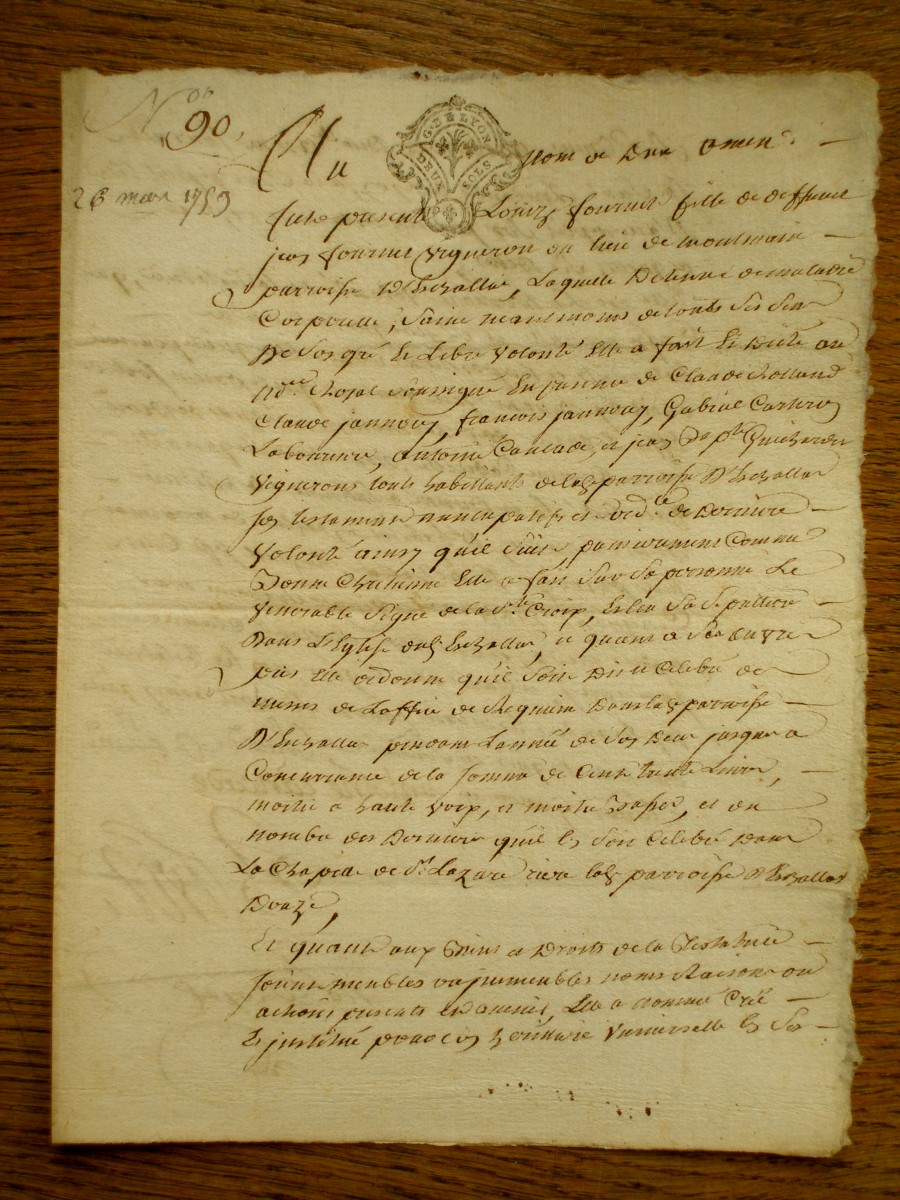 No
90,
G. DE LYON
DEUX SOLS
26 mars 1759
Au nom de Dieu amen
fut presente fournel fille de deffunt
jean fournel vigneron du lieu de montmain
parroisse d'Echallas, Laquelle detenue de maladie
Corporelle, Saine neantmoins de touts ses sens
De Son gré et Libre volonté Elle a fait et dicté au
Nore Royal soussigné En presence de Claude Rolland
Claude jannoray, françois jannoray, Gabriel
Laboureurs, antoine et jean Bapte
vignerons touts habittants de lad parroisse d'Echallas
son testament nuncupatif et ordce de derniere
volonté ainsy qu'il suit, premierement Comme
Bonne Chretienne Elle a fait Sur Sa personne Le
venerable Signe de la Ste Croix, Esleu Sa Sepulture
Dans L'Eglise dud Echallas, et quant a Ses œuvres
pies elle ordonne qu'il soit dit et Celebré des
messes de L'office de Requiem dans lad parroisse
D'Echallas pendant L'année de son deces jusques a
Concurrance de la somme de Cent trente Livres,
moitié a haute voix, et moitié basse, et du
nombre des Dernieres qu'il en soit Celebré dans
La Chapelle de St Lazare riere lad parroisse d'Echallas
Douze,
Et quant aux Biens et Droits de la Testatrice
soient meubles ou jmmeubles noms Raisons ou
actions presents et avenir, Elle a nommé Créé
Et jnstitué pour son heritiere universelle Et Sa